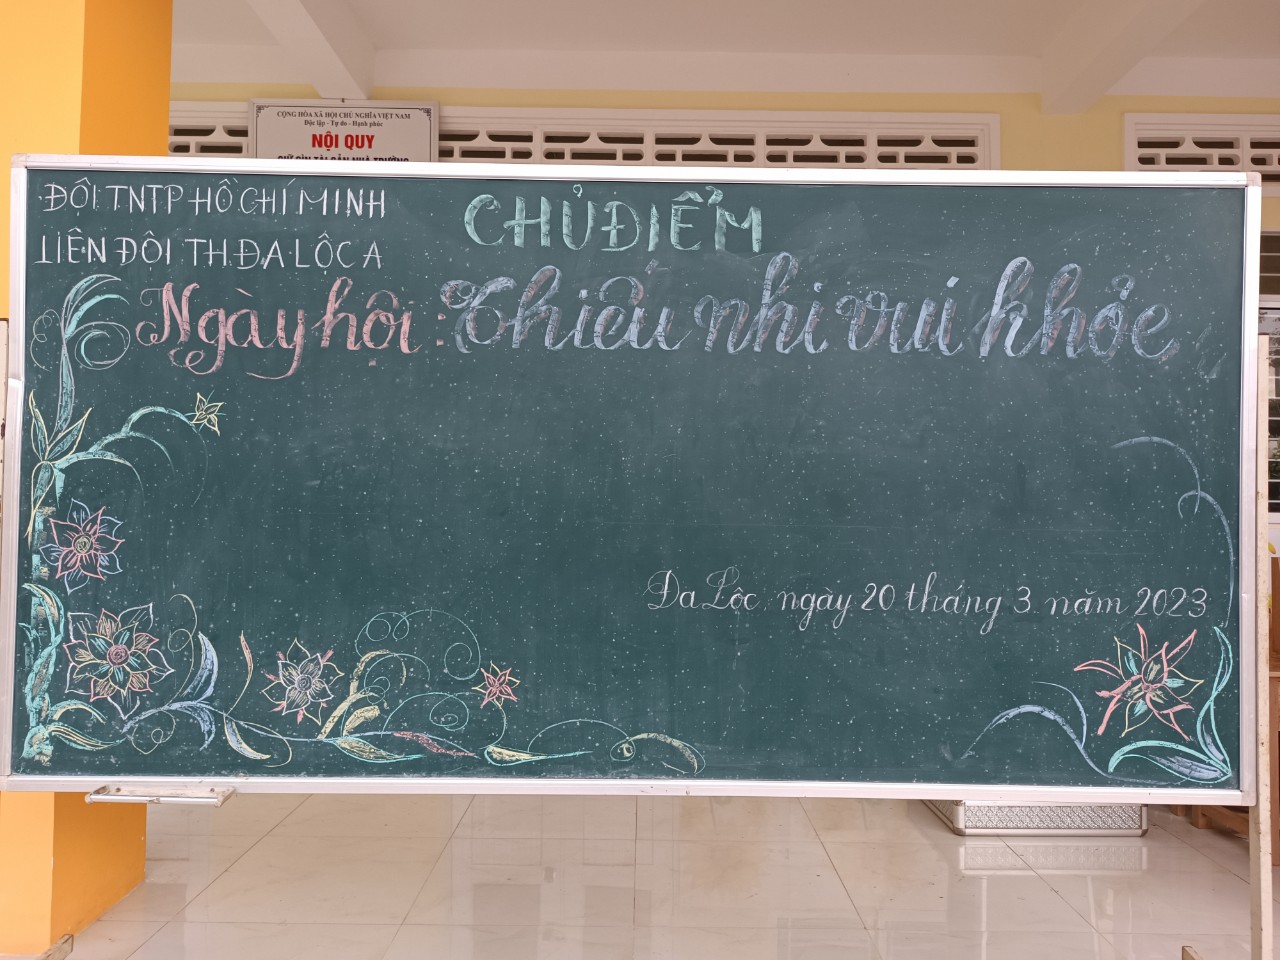 CỘNG HÒA XÃ HỘI CHỦ NGHĨA VIỆT NAM
Độc lập - Tự do - Hạnh phúc
NỘI QUY
GIỮ GÌN TÀI SẢN NHÀ TRƯỜNG
ĐỘI TNTP HỒ CHÍ MINH
LIÊN ĐỘI TH.ĐA LỘC A
CHỦ ĐIỂM
Ngày hội : Thiếu nhi vui khỏe
Đa Lộc, ngày 20 tháng 3 năm 2023